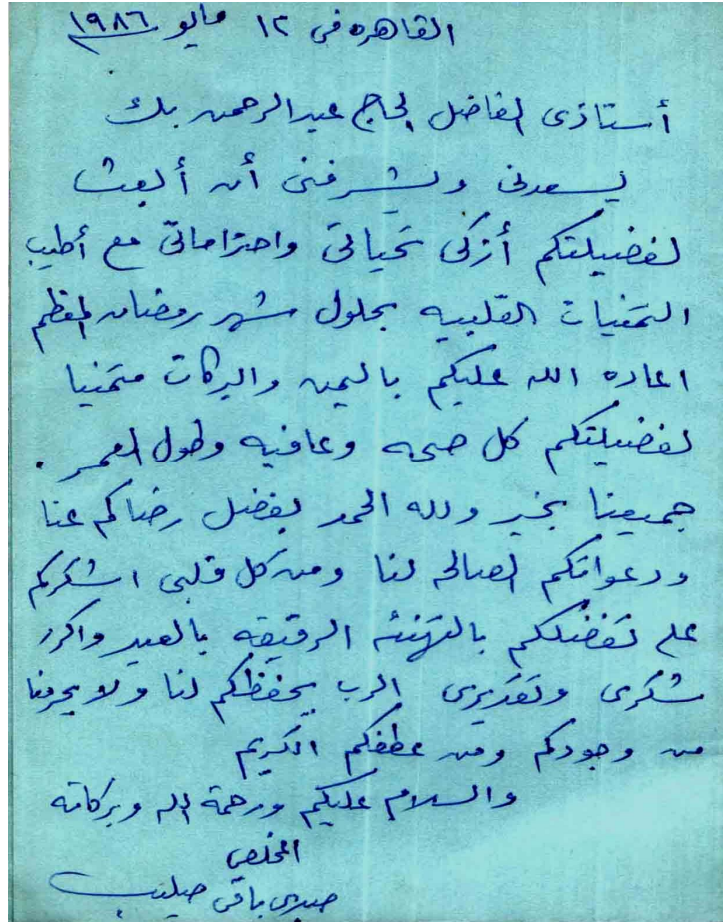 القاهرة في ١٢ مايو ١٩٨٦
أستاذى الفاضل الحاج عبدالرحمن بك
يسعدنى ويشرفنى أن أبعث
لفضيلتكم أزكى تحياتى واحتراماتى مع أطيب
التمنيات القلبيه بحلول شهر رمضان المعظم
اعاده الله عليكم باليمن والبركات متمنيا
لفضيلتكم كل صحه وعافيه وطول العمر .
جميعنا بخير ولله الحمد بفضل رضاكم عنا
ودعواتكم الصالحه لنا ومن كل قلبى اشكركم
على تفضلكم بالتهنئه الرقيقه بالعيد واكرر
شكرى وتقديرى الرب يحفظكم لنا ولا يحرمنا
من وجودكم ومن عطفكم الكريم
والسلام عليكم ورحمة الله وبركاته
المخلص
صبرى باقى صليب